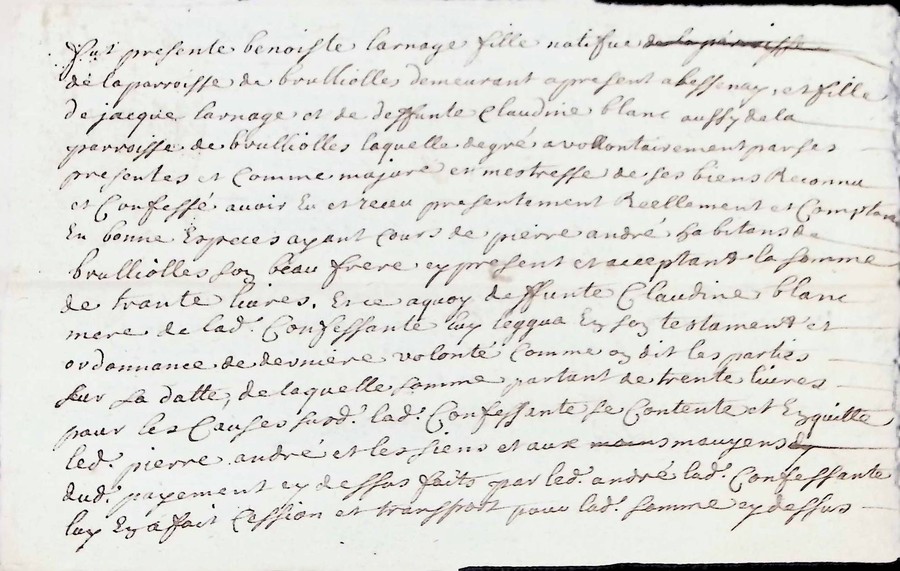 fut presente benoiste larnage fille natifue de la parroisse
de la parroisse de brulliolles demeurant apresent a bessenay, et fille
de jacque larnage et de deffunte Claudine blanc aussy de la
parroisse de brulliolles laquelle de gré a vollontairement par ses
presentes et Comme majure en mestresse de ses biens Reconnu
et Confessé avoir Eu et receu presentement Reellement et Comptant
En bonne Especes ayant cours de pierre andré habitans de
brulliolles soy beau frere cy present et acceptant la somme
de trante liures. Et ce a quoy deffunte Claudine blanc
mere de lad. Confessante luy leggua Ey soy testament et
ordonnance de derniere volonté Comme oy dit les parties
sur sa datte, de laquelle somme partant de trente liures
pour les Causes susd. lad. Confessante se Contente et Ey quitte
led. pierre andré et les siens et aux moens mauyens dy
dud. payement cy dessus faits par led. andré lad. Confessante
luy Ey a fait Cession et transport pour lad. somme cy dessus